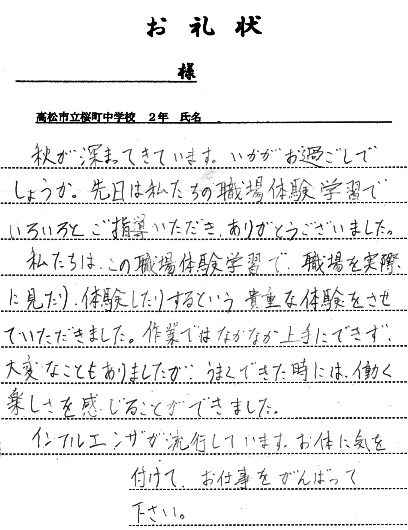 お礼状
様
高松市立桜町中学校 2年 氏名
秋が深まってきています。いかがお過ごしで
しょうか。先日は私たちの職場体験学習で
いろいろとご指導いただき、ありがとうございました。
私たちは、この職場体験学習で、職場を実際
に見たり、体験したりするという、貴重な体験をさせ
ていただきました。作業ではなかなか上手にできず、
大変なこともありましたが、うまくできた時には、働く
楽しさを感じることができました。
インフルエンザが流行しています。お体に気を
付けて、お仕事をがんばって
下さい。